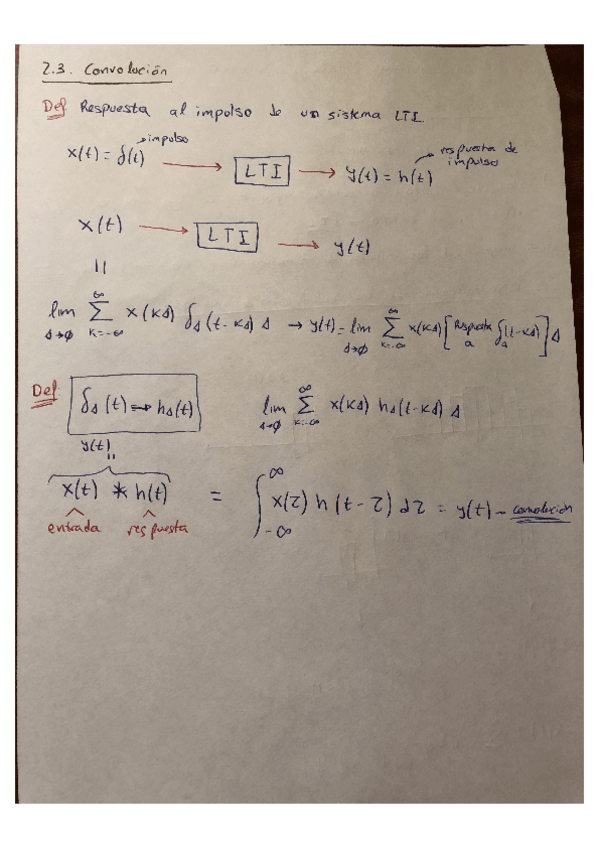 2.3. Convolución
Def Respuesta al impulso de un sistema LTI.
x(t) = δ(t) → impulso → LTI → y(t) = h(t) → respuesta de impulso
x(t) → LTI → y(t)
=
lim Δ→0 ∑ k=-∞ ∞ x(kΔ) δΔ(t-kΔ) Δ → y(t) = lim Δ→0 ∑ k=-∞ ∞ x(kΔ) [Respuesta a δΔ(t-kΔ)] Δ
Def δΔ(t) → hΔ(t) lim Δ→0 ∑ k=-∞ ∞ x(kΔ) hΔ(t-kΔ) Δ
y(t) =
x(t) * h(t) = ∫ -∞ ∞ x(τ) h(t-τ) dτ = y(t) → convolución
entrada respuesta